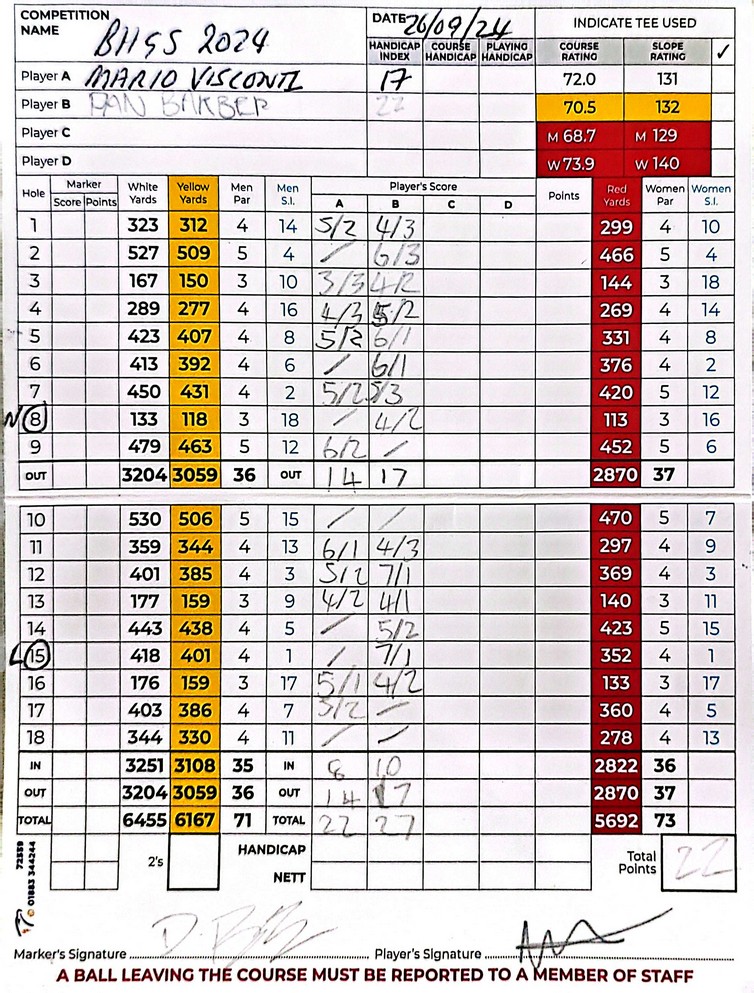 COMPETITION NAME BHGS 2024 DATE 26/09/24 INDICATE TEE USED
HANDICAP INDEX COURSE HANDICAP PLAYING HANDICAP COURSE RATING SLOPE RATING ✓
Player A MARIO VISCONTI 17 72.0 131
Player B DAN BARBER 22 70.5 132
Player C M 68.7 M 129
Player D W 73.9 W 140
Hole Marker White Yards Yellow Yards Men Par Men S.I. Player's Score Points Red Yards Women Par Women S.I.
Score Points A B C D
1 323 312 4 14 5/2 4/3 299 4 10
2 527 509 5 4 / 6/3 466 5 4
3 167 150 3 10 3/3 4/2 144 3 18
4 289 277 4 16 4/3 5/2 269 4 14
5 423 407 4 8 5/2 6/1 331 4 8
6 413 392 4 6 / 6/1 376 4 2
7 450 431 4 2 5/2 5/3 420 5 12
N 8 133 118 3 18 / 4/2 113 3 16
9 479 463 5 12 6/2 / 452 5 6
OUT 3204 3059 36 OUT 14 17 2870 37
10 530 506 5 15 / / 470 5 7
11 359 344 4 13 6/1 4/3 297 4 9
12 401 385 4 3 5/2 7/1 369 4 3
13 177 159 3 9 4/2 4/1 140 3 11
14 443 438 4 5 / 5/2 423 5 15
L 15 418 401 4 1 / 7/1 352 4 1
16 176 159 3 17 5/1 4/2 133 3 17
17 403 386 4 7 5/2 / 360 4 5
18 344 330 4 11 / / 278 4 13
IN 3251 3108 35 IN 8 10 2822 36
OUT 3204 3059 36 OUT 14 17 2870 37
TOTAL 6455 6167 71 TOTAL 22 27 5692 73
2's HANDICAP Total Points 22
NETT
72359
01883 344244
Marker's Signature Player's Signature
A BALL LEAVING THE COURSE MUST BE REPORTED TO A MEMBER OF STAFF